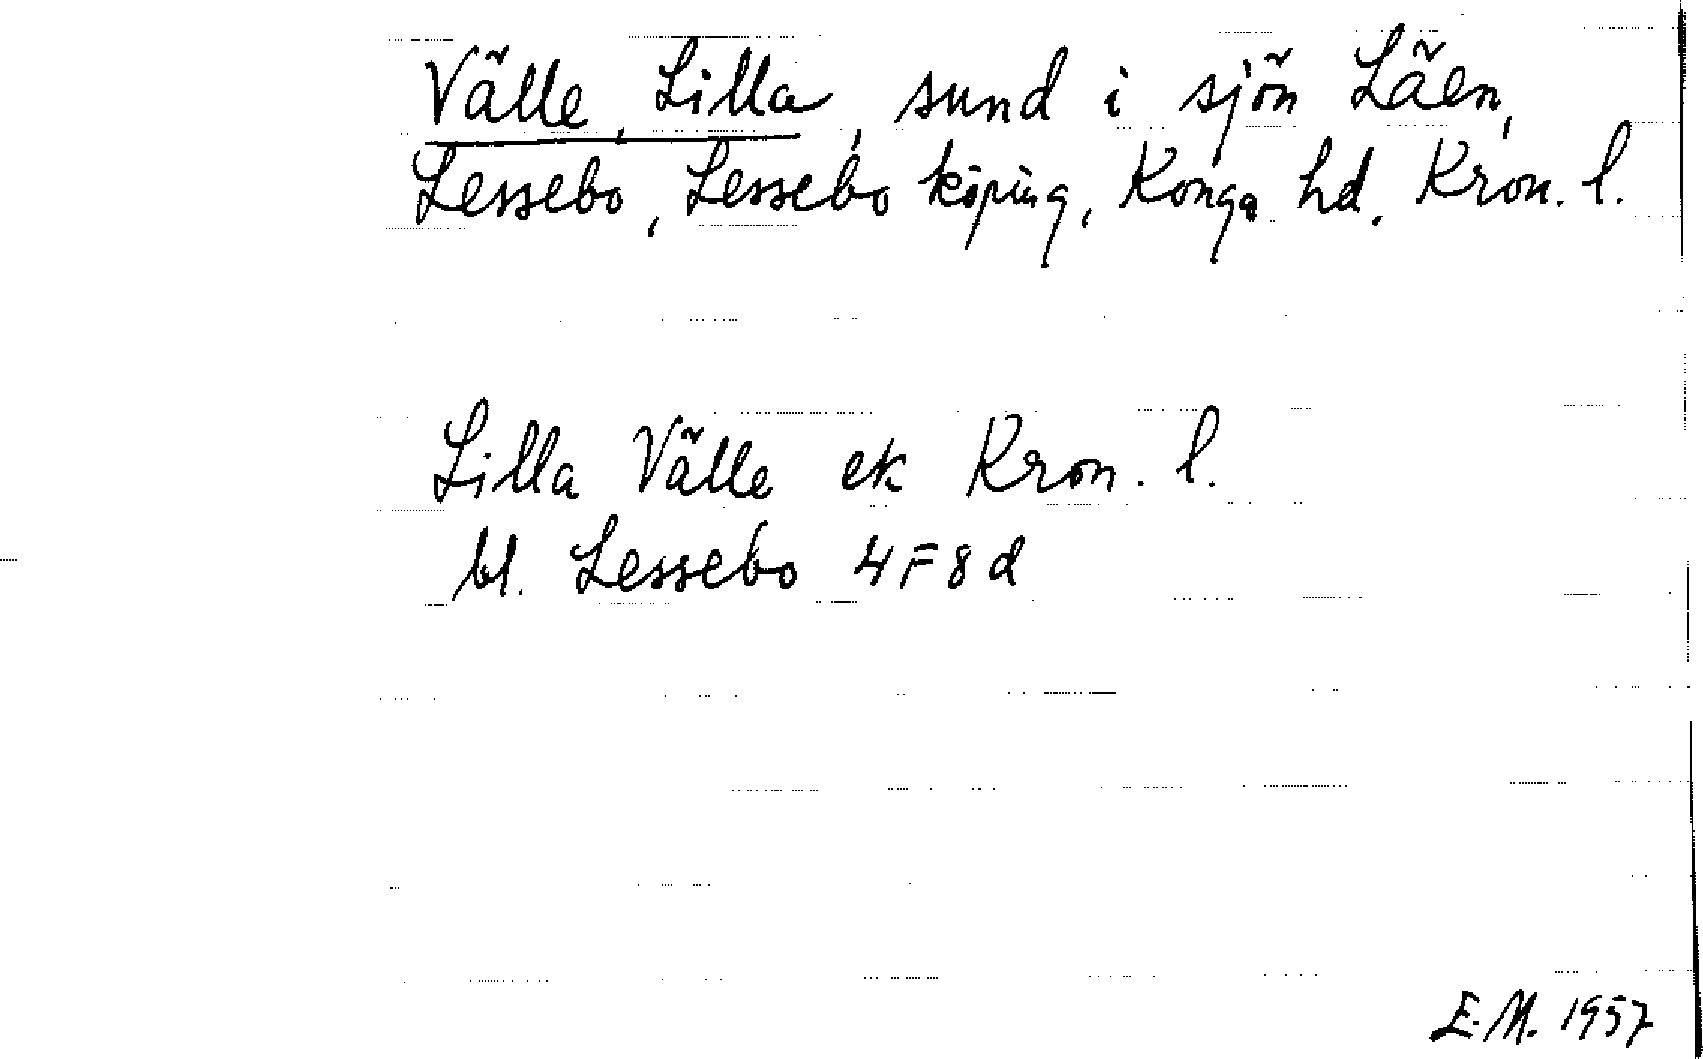 Välle, Lilla, sund i sjön Läen,
Lessebo, Lessebo köping, Konga hd. Kron. l.
Lilla Välle ek Kron. l.
bl. Lessebo 4F8d
E.M. 1957